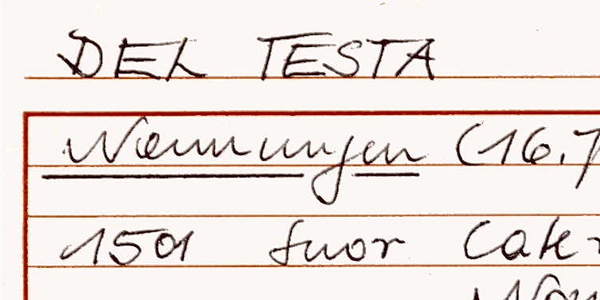 DEL TESTA
Nennungen (16.
1501 suor Cate